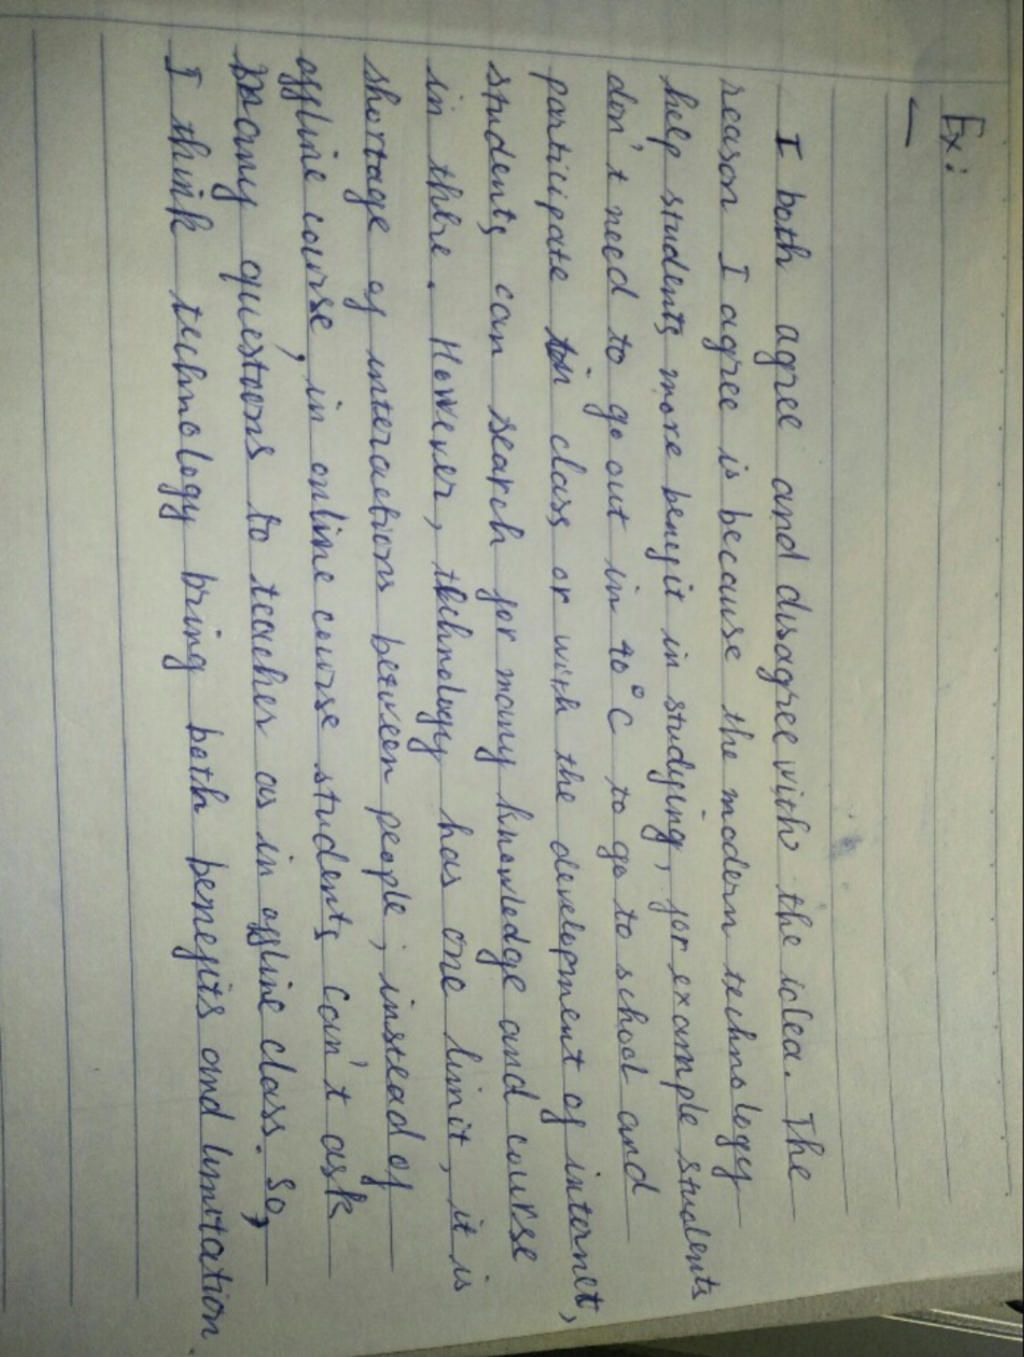 Ex:
I both agree and disagree with the idea. The
reason I agree is because the modern technology
help students more benefit in studying, for example students
don't need to go out in 40°C to go to school and
participate in class or with the development of internet,
students can search for many knowledge and course
in there. However, technology has one limit, it is
shortage of interactions between people, instead of
offline course, in online course students can't ask
many questions to teacher as in offline class. So,
I think technology bring both benefits and limitation